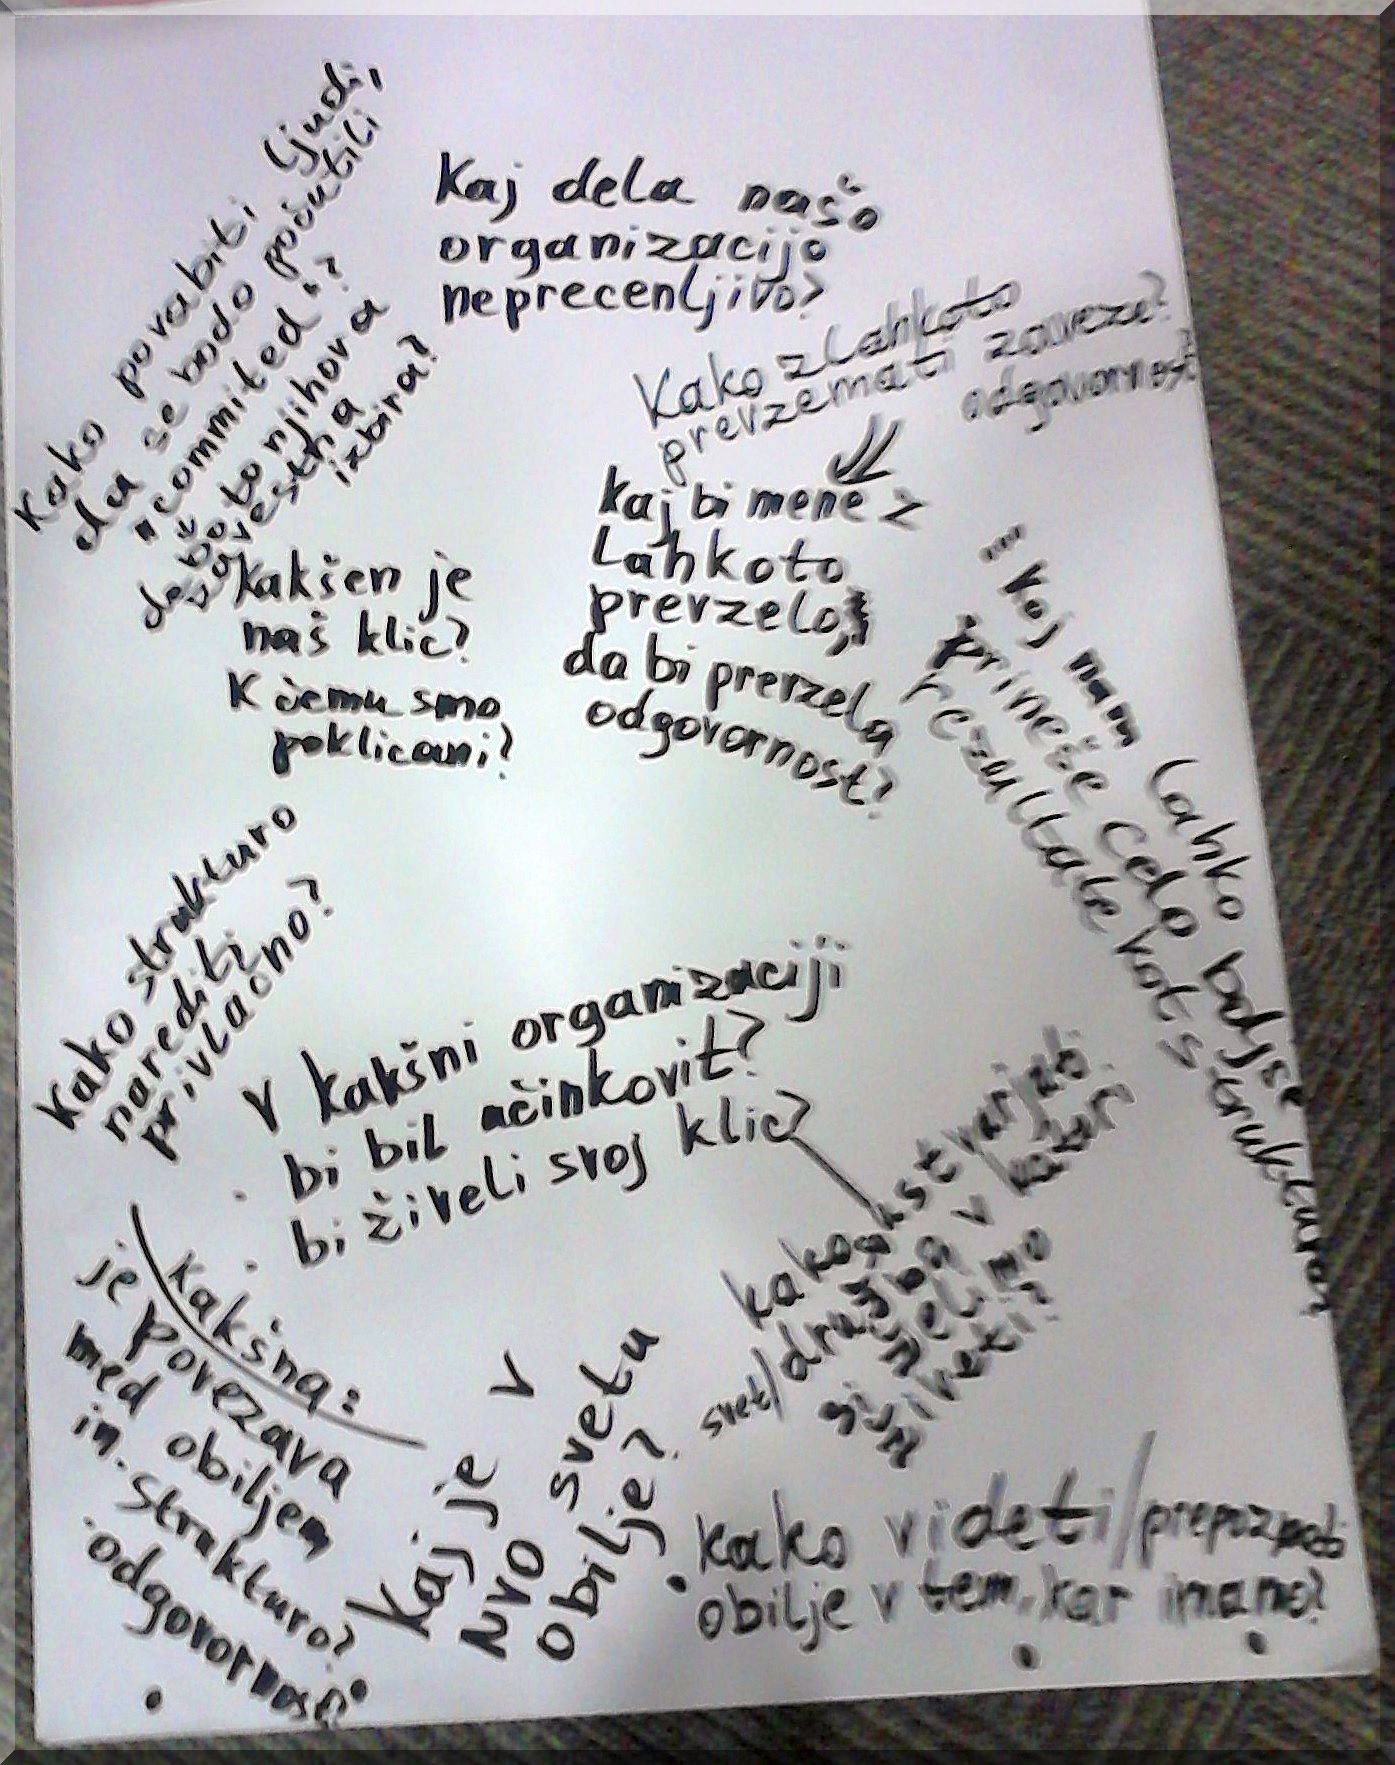 Kako povabiti ljudi,
da se bodo počutili
"commited"?
da bo to njihova
zavestna
izbira?
Kaj dela našo
organizacijo
neprecenljivo?
Kako z lahkoto
prevzemati zaveze?
odgovornost
kaj bi mene z
Lahkoto
prevzelo,
da bi prevzela
odgovornost?
Kakšen je
naš klic?
K čemu smo
poklicani?
... kaj nam lahko boljše
prinese celo
rezultate kot struktura?
Kako strukturo
narediti
privlačno?
V kakšni organizaciji
bi bil učinkovit?
bi živeli svoj klic?
kako ustvarjati
svet/družba v kateri
si želimo
živeti?
Kakšna:
je povezava
med obiljem
in strukturo?
odgovornost?
Kaj je v
NVO svetu
obilje?
kako videti/prepoznati
obilje v tem, kar imamo?